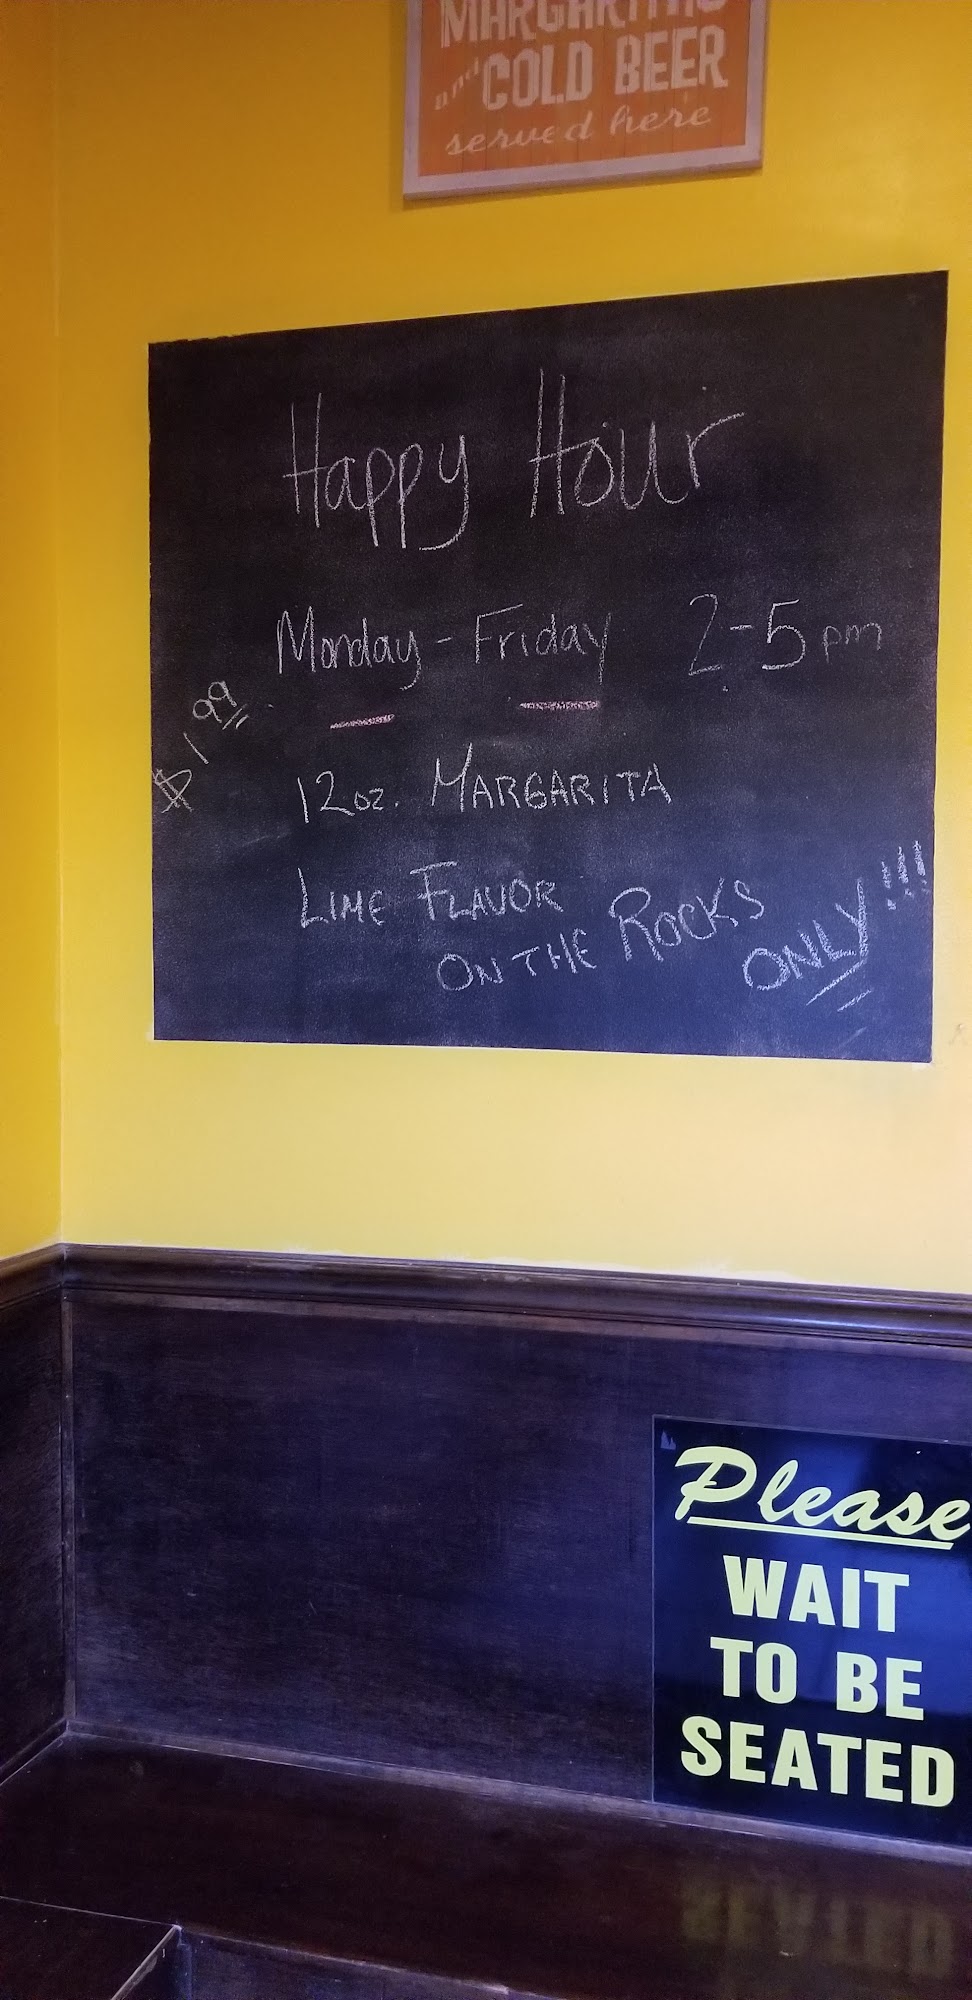 MARGARITAS
and COLD BEER
served here
Happy Hour
Monday - Friday 2-5pm
$1.99
12oz. MARGARITA
LIME FLAVOR
ON THE ROCKS
ONLY!!!!
Please
WAIT
TO BE
SEATED